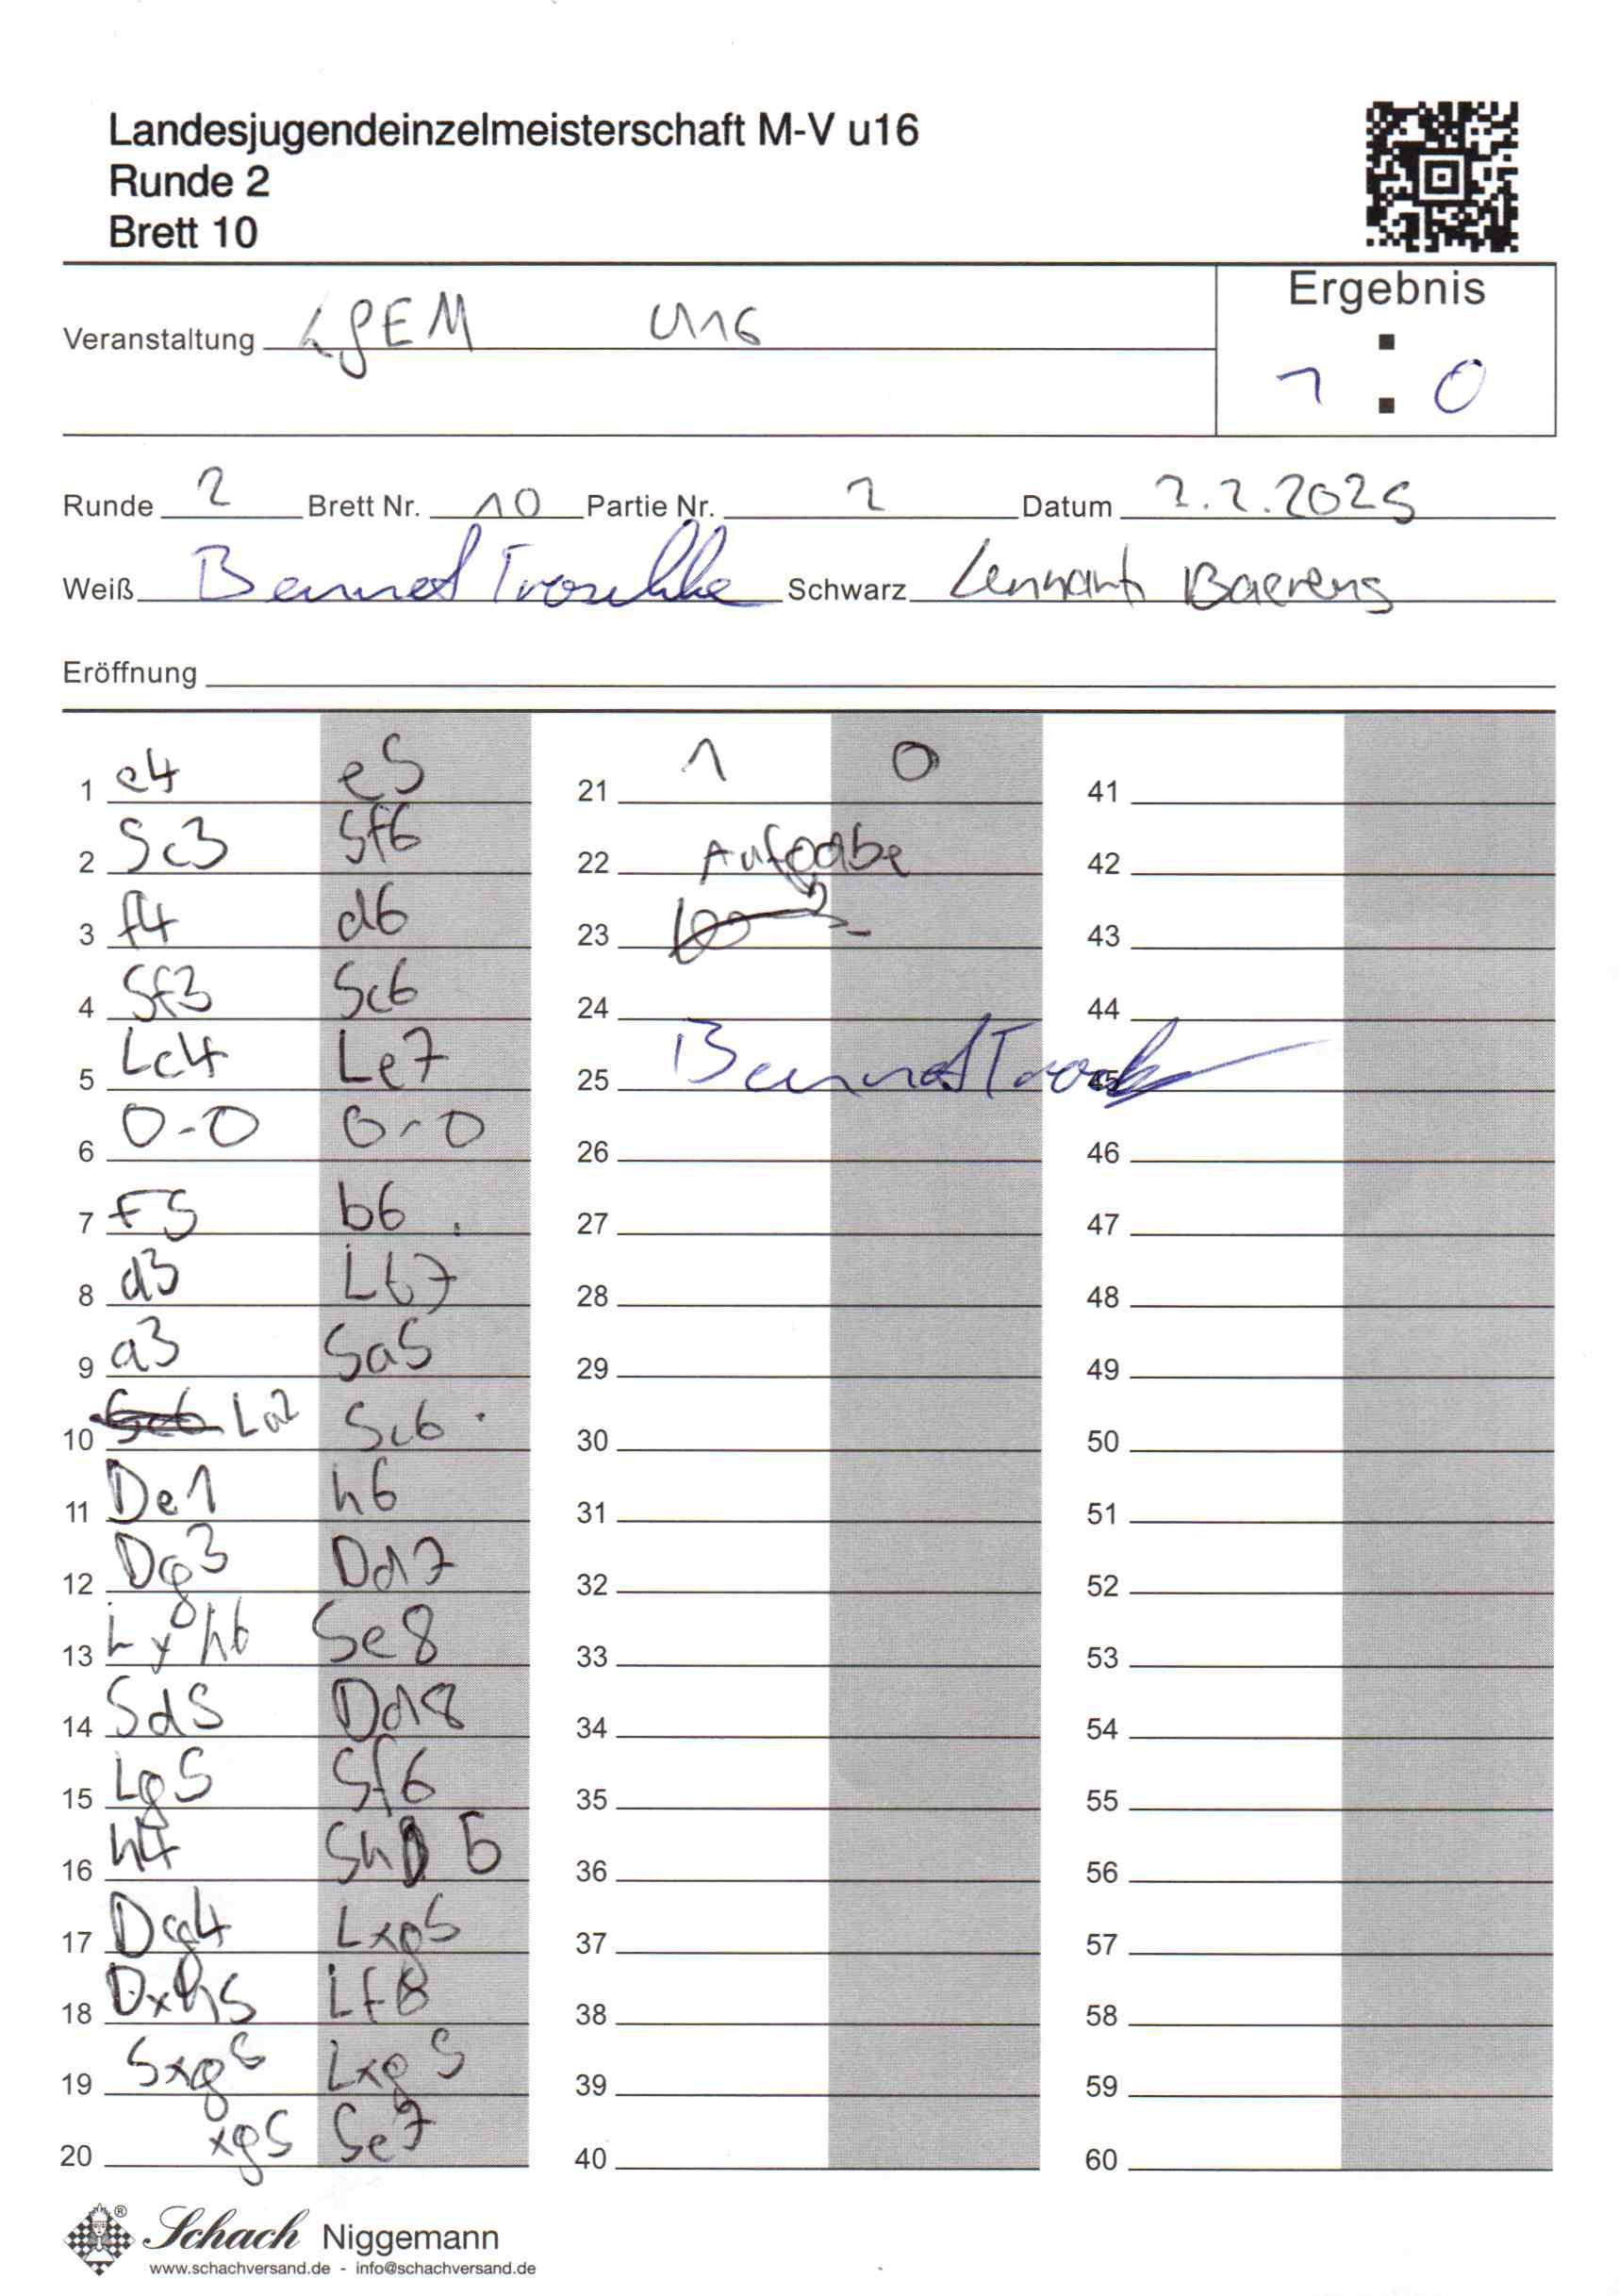 Landesjugendeinzelmeisterschaft M-V u16
Runde 2
Brett 10
Ergebnis
Veranstaltung LJEM U16
1 : 0
Runde 2 Brett Nr. 10 Partie Nr. 2 Datum 2.2.2025
Weiß Bennet Troschke Schwarz Lennart Baerens
Eröffnung
1 e4 e5 21 1 0 41
2 Sc3 Sf6 22 Aufgabe 42
3 f4 d6 23 43
4 Sf3 Sc6 24 44
5 Lc4 Le7 25 Bennet 45
6 0-0 0-0 26 46
7 f5 b6 27 47
8 d3 Lb7 28 48
9 a3 Sa5 29 49
10 La2 Sc6 30 50
11 De1 h6 31 51
12 Dg3 Dd7 32 52
13 Lxh6 Se8 33 53
14 Sd5 Dd8 34 54
15 Lg5 Sf6 35 55
16 h4 Sh5 36 56
17 Dg4 Lxg5 37 57
18 Dxh5 Lf6 38 58
19 Sxg5 Lxg5 39 59
20 xg5 Se7 40 60
Schach Niggemann
www.schachversand.de - info@schachversand.de